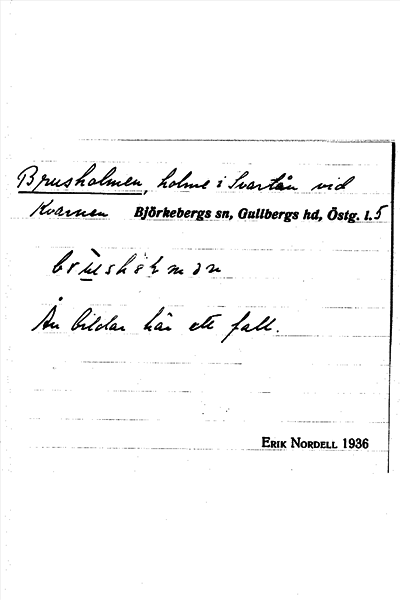 Brusholmen, holme i Svartån vid
Kvarnen Björkebergs sn, Gullbergs hd, Östg. l. 5
Ån bildar här ett fall.
ERIK NORDELL 1936